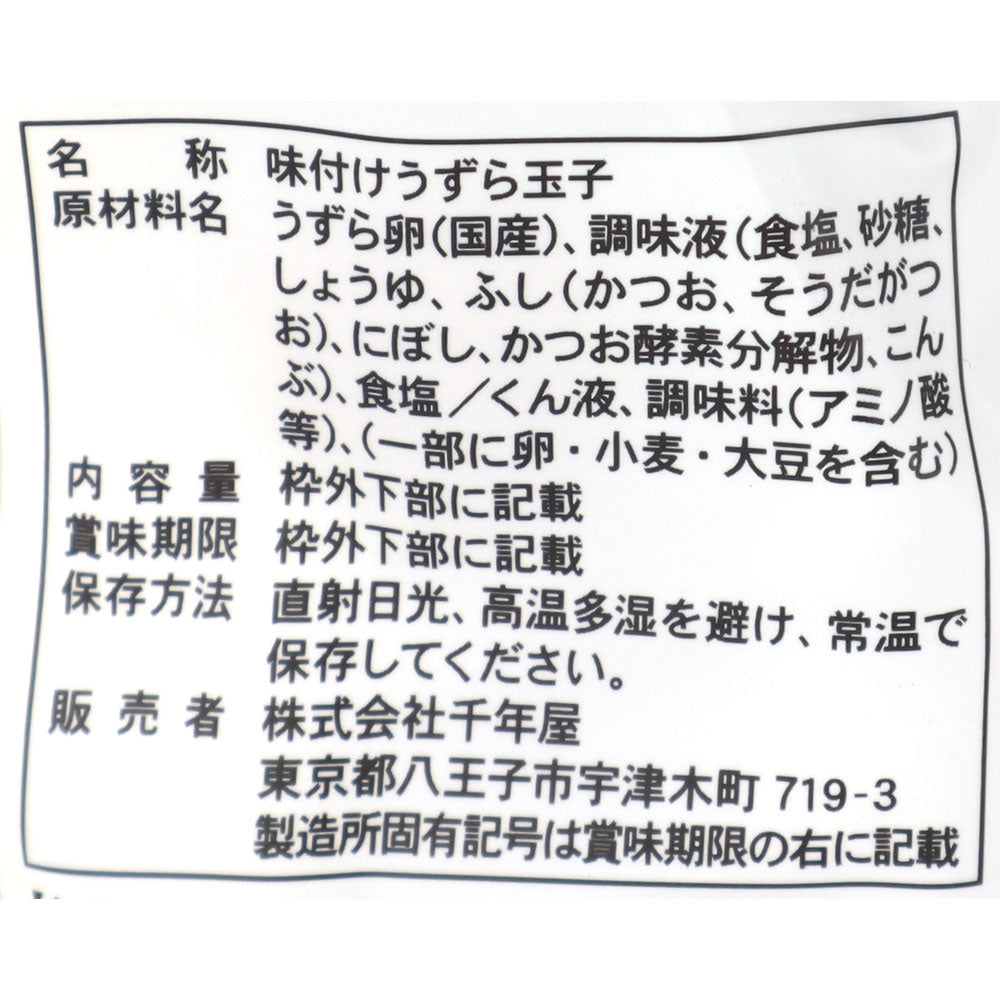 名称 味付けうずら玉子
原材料名 うずら卵(国産)、調味液(食塩、砂糖、
しょうゆ、ふし(かつお、そうだがつ
お)、にぼし、かつお酵素分解物、こん
ぶ)、食塩/くん液、調味料(アミノ酸
等)、(一部に卵・小麦・大豆を含む)
内容量 枠外下部に記載
賞味期限 枠外下部に記載
保存方法 直射日光、高温多湿を避け、常温で
保存してください。
販売者 株式会社千年屋
東京都八王子市宇津木町 719-3
製造所固有記号は賞味期限の右に記載